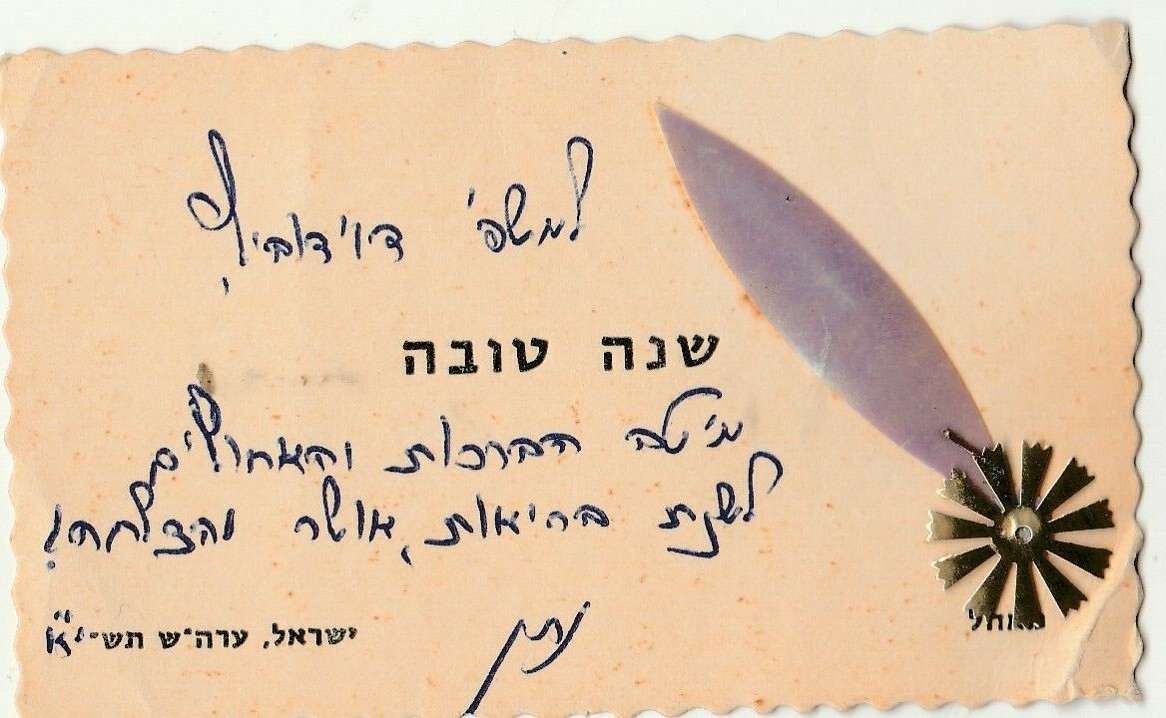 למשפ' דוידוביץ,
שנה טובה
מיטב הברכות והאחולים
לשנת בריאות, אושר והצלחה!
נתן
ישראל, ערה״ש תש-י"א